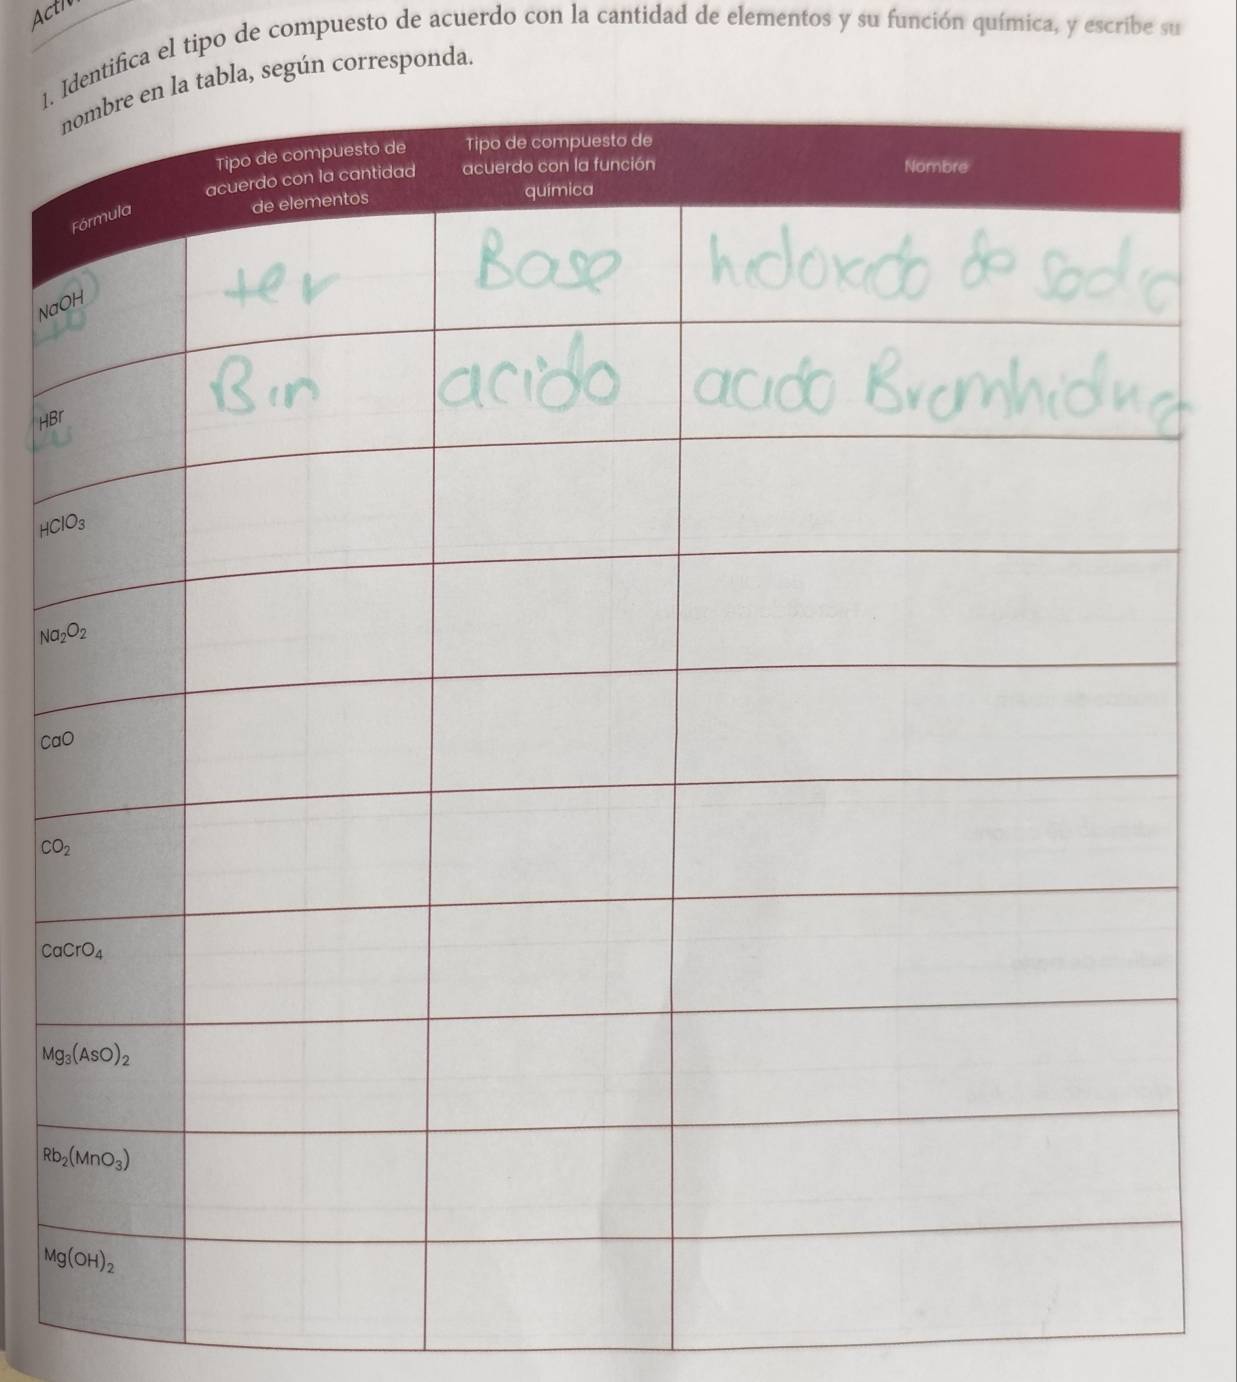 1. Identifica el tipo de compuesto de acuerdo con la cantidad de elementos y su función química, y escribe su
nombre en la tabla, según corresponda.
Fórmula
Tipo de compuesto de
acuerdo con la cantidad
de elementos
Tipo de compuesto de
acuerdo con la función
química
Nombre
NaOH
ter
Base
hidoxido de sodio
HBr
Bin
acido
acido
HClO₃
Na₂O₂
CaO
CO₂
CaCrO₄
Mg₃(AsO)₂
Rb₂(MnO₃)
Mg(OH)₂